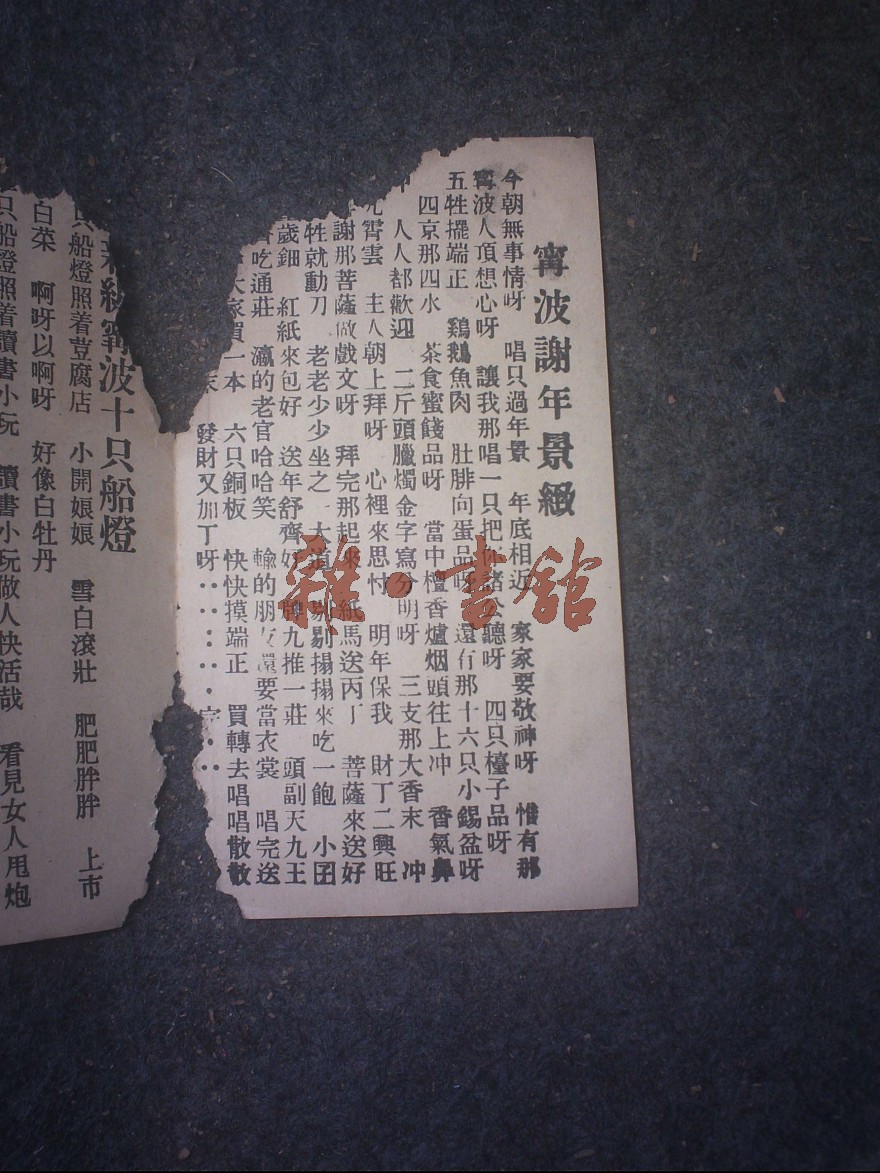 甯波謝年景緻
今朝無事情呀 唱只過年景 年底相近 家家要敬神呀 惟有那
甯波人頂想心呀 讓我那唱一只把 聽呀 四只檯子品呀
五牲擺端正 鷄鵝魚肉 肚腓向蛋品呀 還有那十六只小錫盆呀
四京那四水 茶食蜜餞品呀 當中檀香爐烟頭往上冲 香氣鼻
人人都歡迎 二斤頭臘燭金字寫分明呀 三支那大香末 冲
霄雲 主人朝上拜呀 心裡來思忖 明年保我 財丁二興旺
謝那菩薩做戲文呀 拜完那起來 紙馬送丙丁 菩薩來送好
牲就動刀 老老少少坐之一大 剔搨搨來吃一飽 小囝
歲鈿 紅紙來包好 送年舒齊好 牌九推一莊 頭副天九王
吃通莊 瀛的老官哈哈笑 輸的朋友還要當衣裳 唱完送
大家買一本 六只銅板 快快摸端正 買轉去唱唱散散
發財又加丁呀
甯波十只船燈
只船燈照着荳腐店 小開娘娘 雪白滾壯 肥肥胖胖 上市
白菜 啊呀以啊呀 好像白牡丹
只船燈照着讀書小玩 讀書小玩做人快活哉 看見女人甩炮
雜·書館